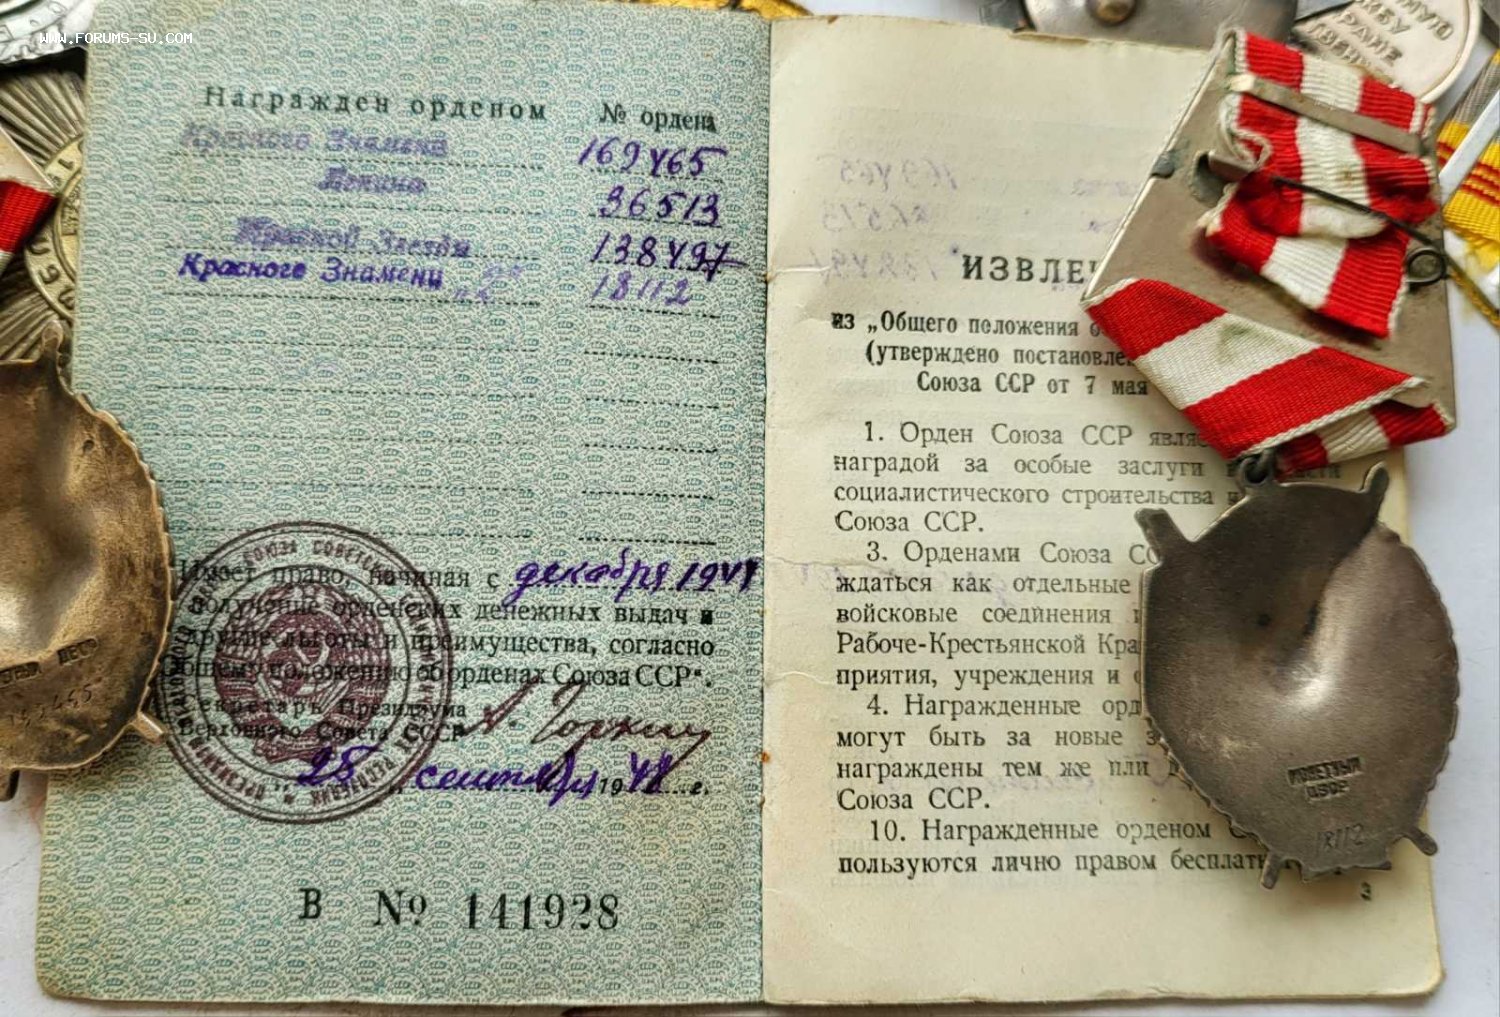 WWW.FORUMS-SU.COM
Награжден орденом № ордена
Красного Знамени 169465
Ленина 36513
Красной Звезды 138497
Красного Знамени "2" 18112
Имеет право, начиная с декабря 1944
получение орденских денежных выдач и
другие льготы и преимущества, согласно
Общему положению об орденах Союза ССР".
Секретарь Президиума
Верховного Совета СССР А. Горкин
25 сентября 1948 г.
В № 141928
ИЗВЛЕ
из „Общего положения о
(утверждено постановле
Союза ССР от 7 мая
1. Орден Союза ССР явля
наградой за особые заслуги
социалистического строительства
Союза ССР.
3. Орденами Союза СС
ждаться как отдельные
войсковые соединения
Рабоче-Крестьянской Кра
приятия, учреждения и
4. Награжденные орд
могут быть за новые
награждены тем же или
Союза ССР.
10. Награжденные орденом
пользуются лично правом бесплатн
3
МОНЕТНЫЙ
ДВОР
18112